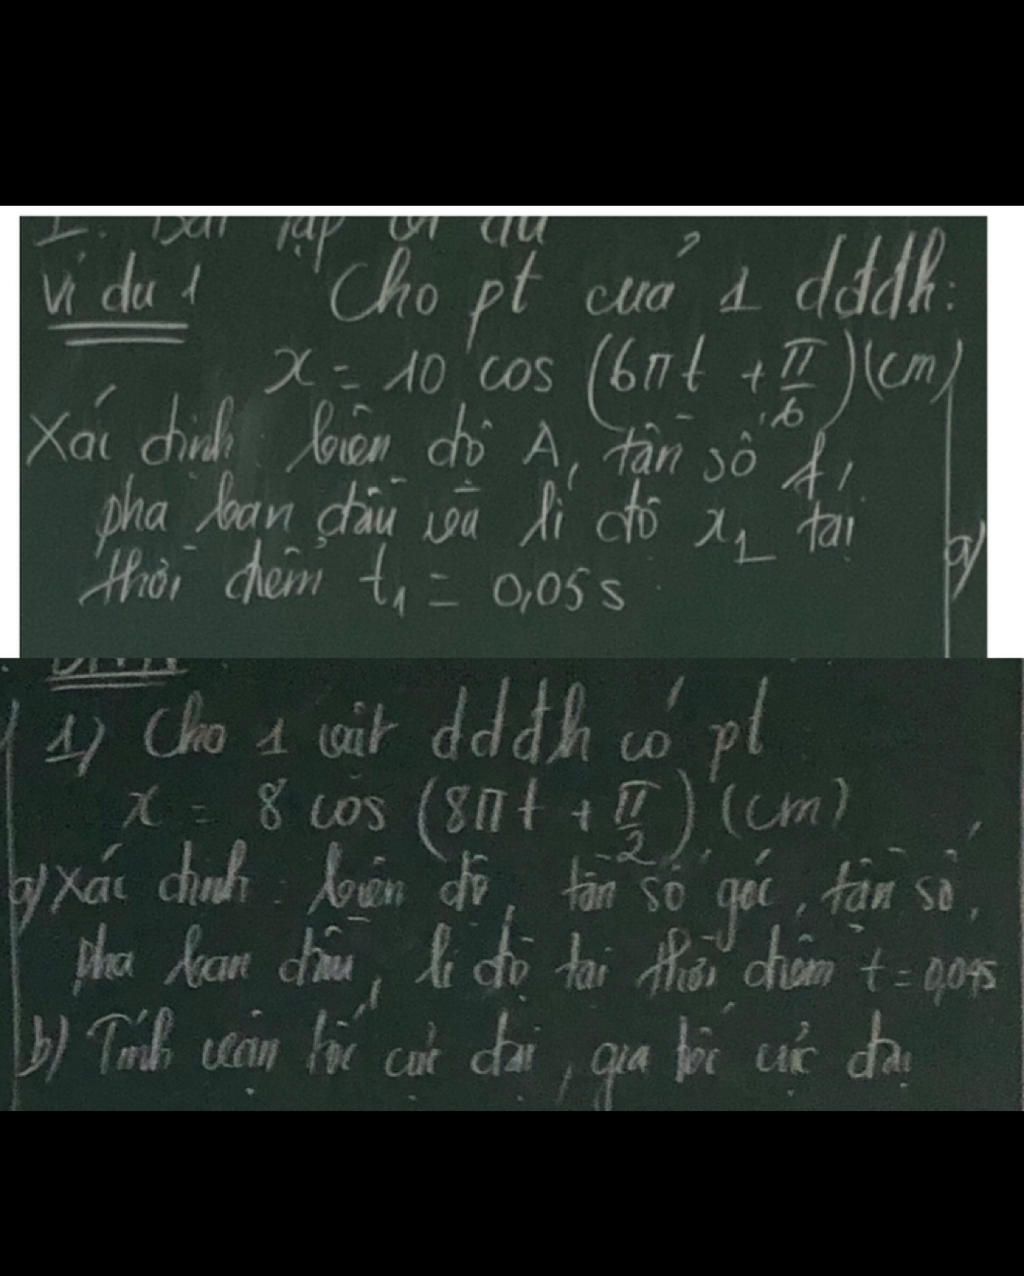 Ví dụ 1 Cho pt của 1 dđđh:
x = 10 cos (6πt + π/6) (cm)
Xác định biên độ A, tần số f,
pha ban đầu và li độ x₁ tại
thời điểm t₁ = 0,05 s
a)
1) Cho 1 vật dđđh có pt
x = 8 cos (8πt + π/2) (cm)
a) Xác định: biên độ, tần số góc, tần số,
pha ban đầu, li độ tại thời điểm t =
b) Tính vận tốc cực đại, gia tốc cực đại